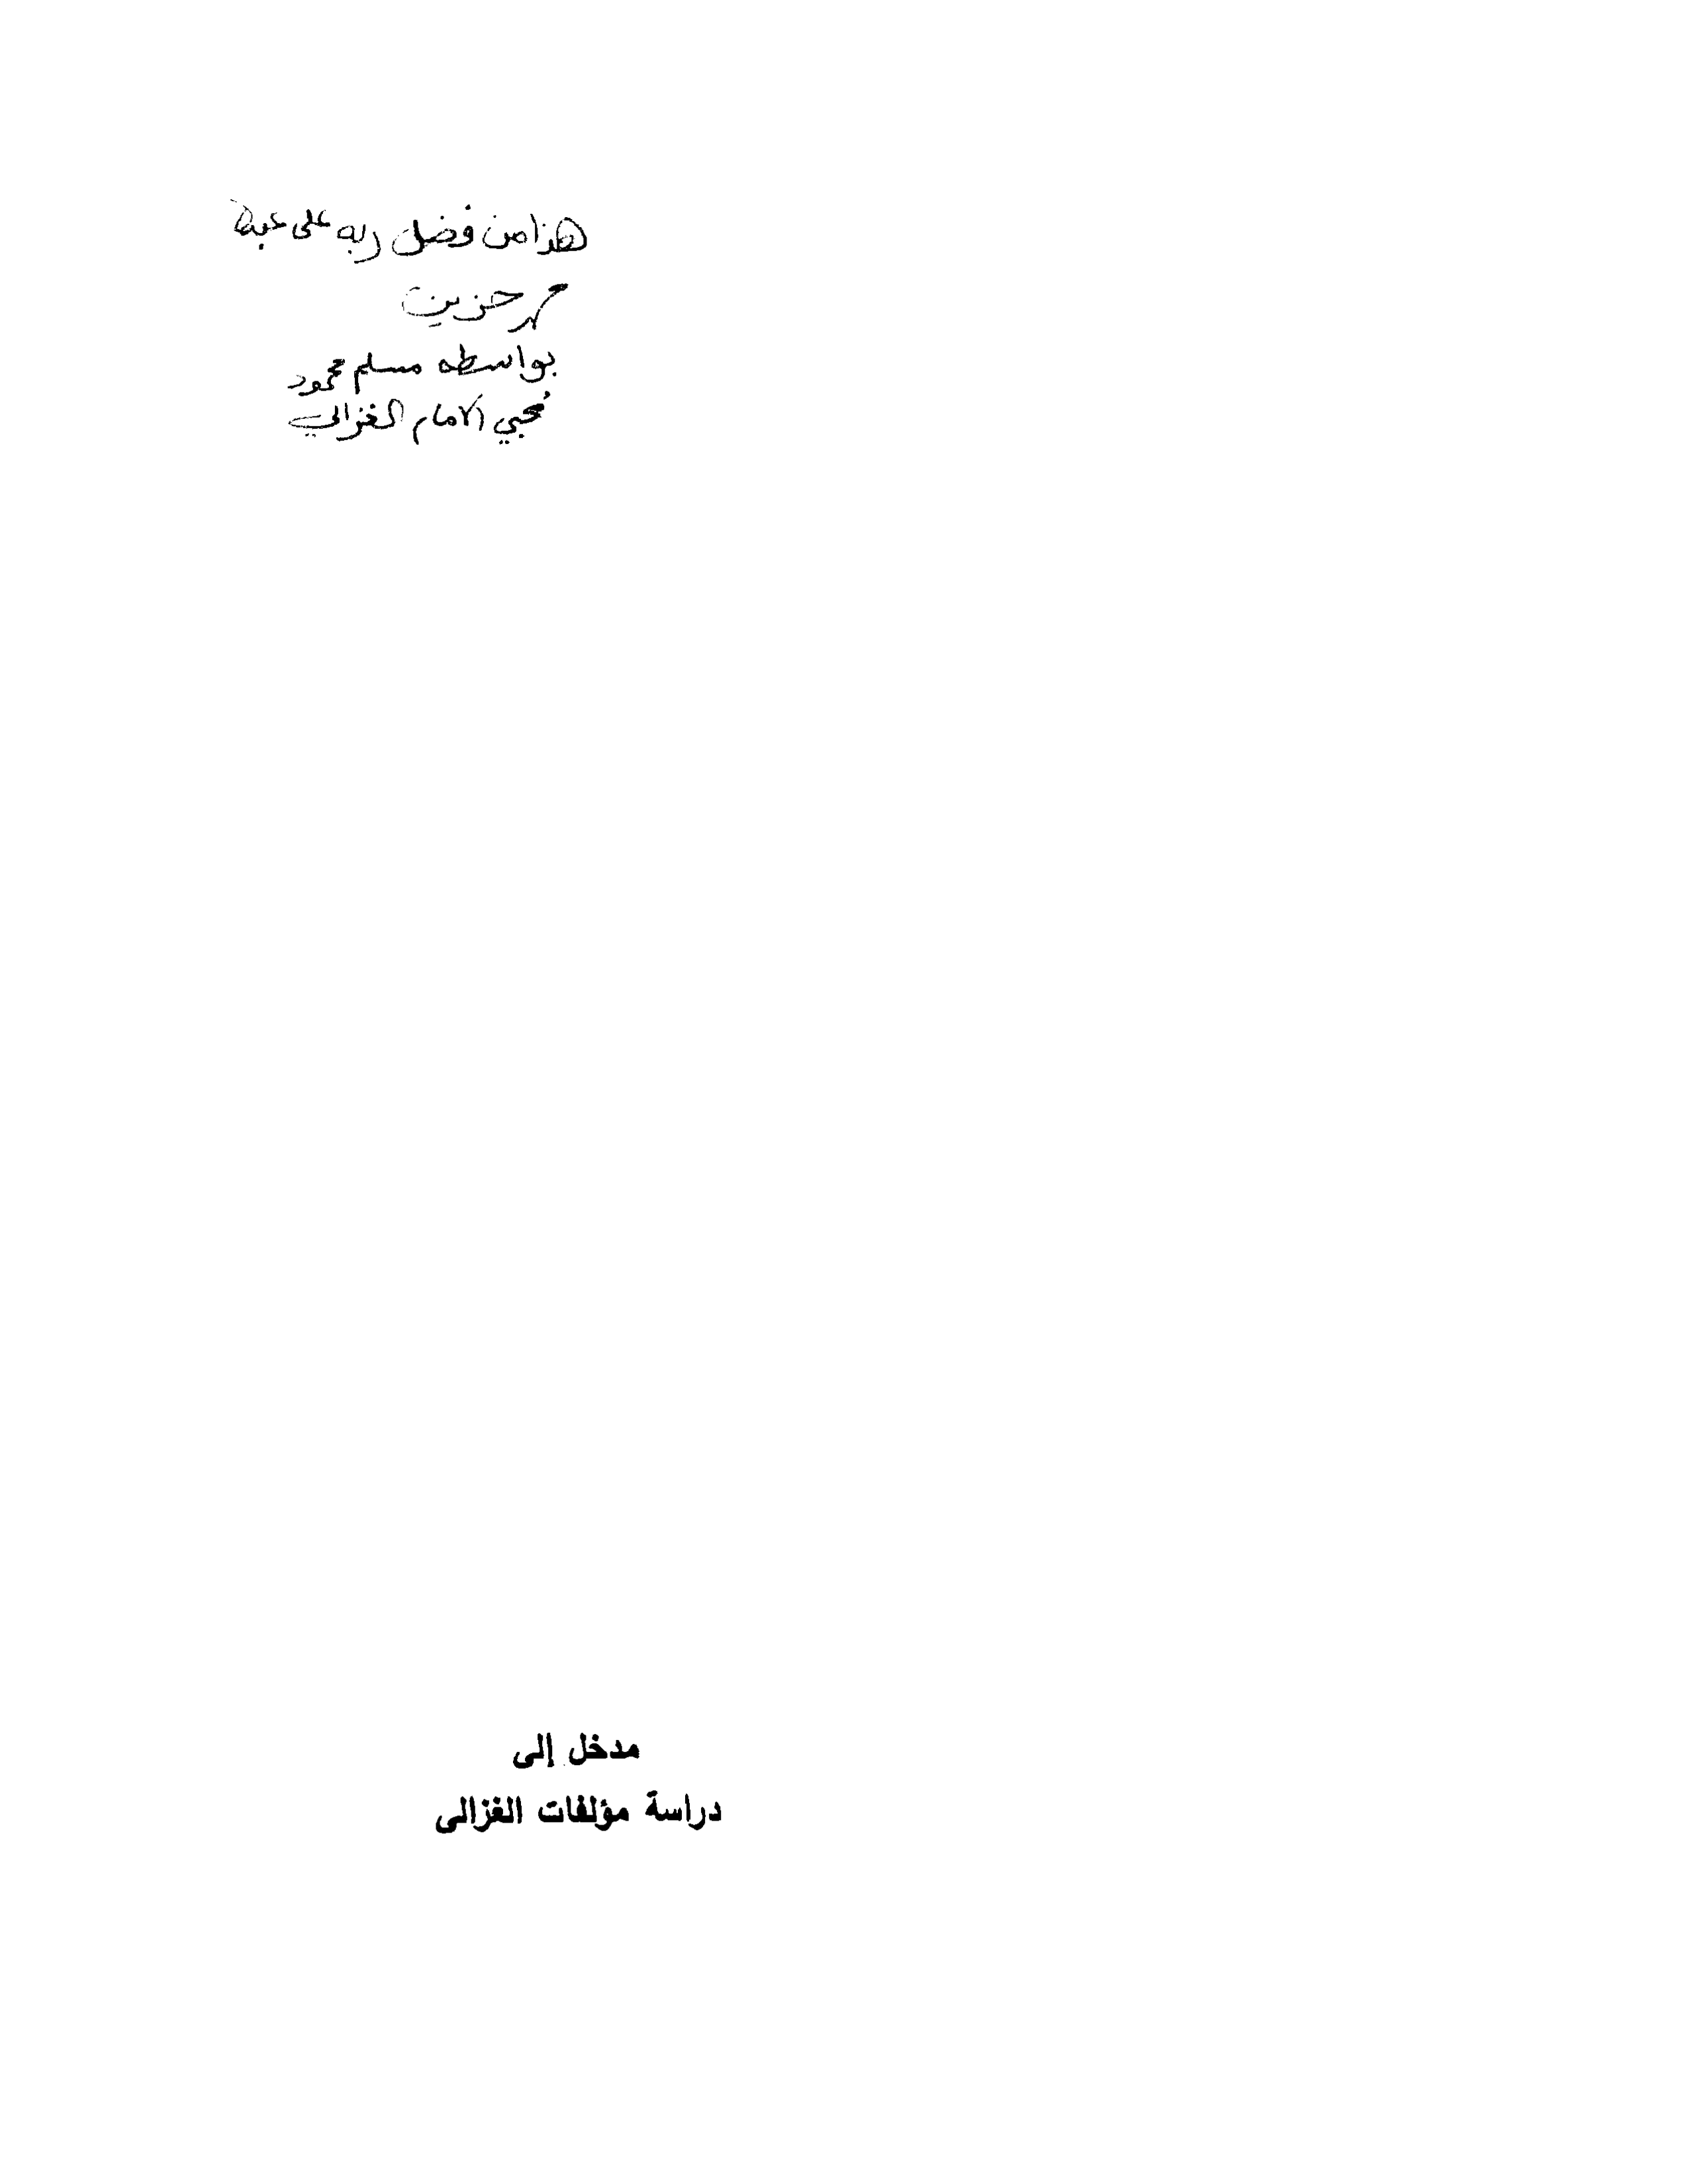 هذا من فضل ربه على عبده
حزين
بواسطه مسلم محمود
محبي الامام الغزالي
مدخل إلى
دراسة مؤلفات الغزالى